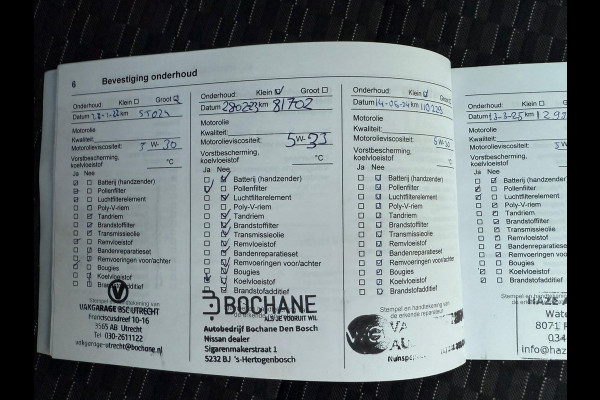 6 Bevestiging onderhoud
Onderhoud: Klein Groot
Datum km
Motorolie
Kwaliteit:
Motorolieviscositeit: 5W-30
Vorstbescherming, °C
koelvloeistof
Ja Nee
Batterij (handzender)
Pollenfilter
Luchtfilterelement
Poly-V-riem
Tandriem
Brandstoffilter
Transmissieolie
Remvloeistof
Bandenreparatieset
Remvoeringen voor/achter
Bougies
Koelvloeistof
Brandstofadditief
Stempel en handtekening van
VAKGARAGE BSC UTRECHT
Franciscusdreef 10-16
3565 AB Utrecht
Tel 030-2611122
vakgarage-utrecht@bochane.nl
Onderhoud: Klein Groot
Datum 280223 km 81702
Motorolie
Kwaliteit:
Motorolieviscositeit: 5W-33
Vorstbescherming, °C
koelvloeistof
Ja Nee
Batterij (handzender)
Pollenfilter
Luchtfilterelement
Poly-V-riem
Tandriem
Brandstoffilter
Transmissieolie
Remvloeistof
Bandenreparatieset
Remvoeringen voor/achter
Bougies
Koelvloeistof
Brandstofadditief
BOCHANE
ALS JE VOORUIT WIL
Autobedrijf Bochane Den Bosch
Nissan dealer
Sigarenmakerstraat 1
5232 BJ 's-Hertogenbosch
Onderhoud: Klein Groot
Datum 14-05-24 km 110229
Motorolie
Kwaliteit:
Motorolieviscositeit: 5W-30
Vorstbescherming, °C
koelvloeistof
Ja Nee
Batterij (handzender)
Pollenfilter
Luchtfilterelement
Poly-V-riem
Tandriem
Brandstoffilter
Transmissieolie
Remvloeistof
Bandenreparatieset
Remvoeringen voor/achter
Bougies
Koelvloeistof
Brandstofadditief
Stempel en handtekening van
de erkende reparateur
Nunspe
Onderhoud: Klein Groot
Datum 13-3-25 km 129
Motorolie
Kwaliteit:
Motorolieviscositeit: 5W
Vorstbescherming,
koelvloeistof
Ja Nee
Batterij (handzender)
Pollenfilter
Luchtfilterelement
Poly-V-riem
Tandriem
Brandstoffilter
Transmissieolie
Remvloeistof
Bandenreparatieset
Remvoeringen voor/achter
Bougies
Koelvloeistof
Brandstofadditief
Stempel en handteken
de erkende reparateur
HAZE A
Wate
8071 R
034
info@haz